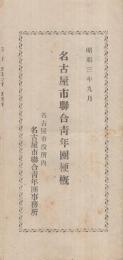 昭和三年九月
名古屋市聯合青年團梗概
名古屋市役所内
名古屋市聯合青年團事務所